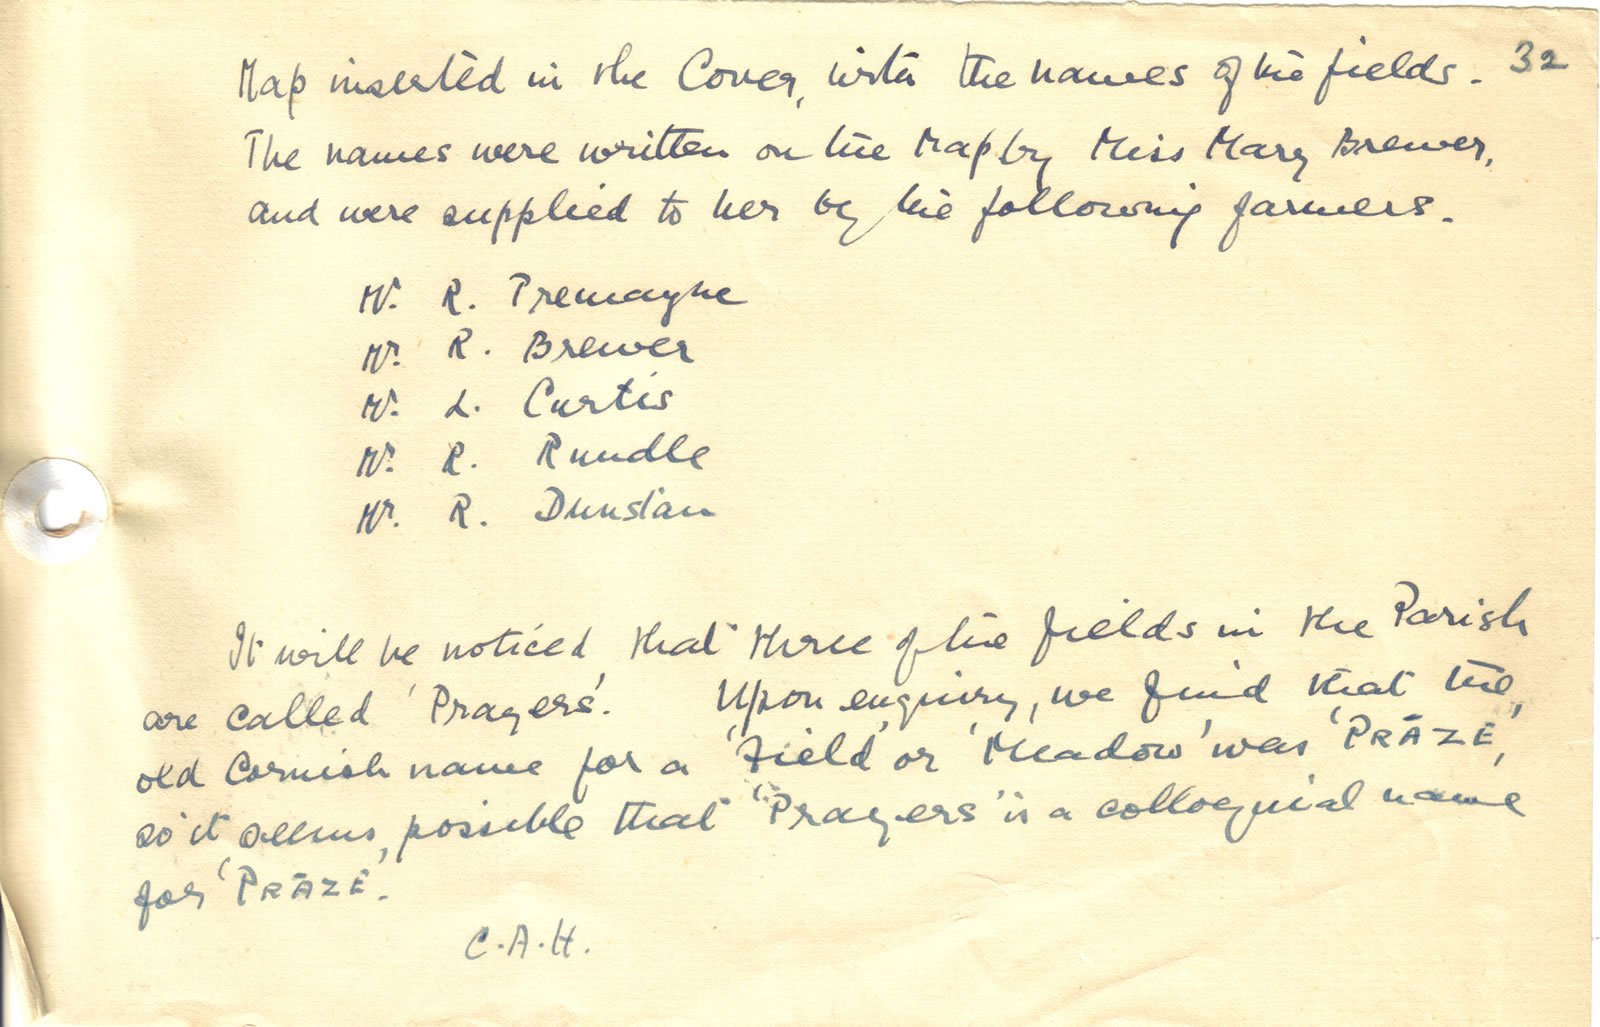 32
Map inserted in the Cover, with the names of the fields.
The names were written on the Map by Miss Mary Brewer,
and were supplied to her by the following farmers.
Mr. R. Tremayne
Mr. R. Brewer
Mr. L. Curtis
Mr. R. Rundle
Mr. R. Dunstan
It will be noticed that three of the fields in the Parish
are called 'Prayers'. Upon enquiry, we find that the
old Cornish name for a 'Field' or 'Meadow' was 'PRĀZE',
so it seems, possible that 'Prayers' is a colloquial name
for 'PRĀZE'.
C.A.H.